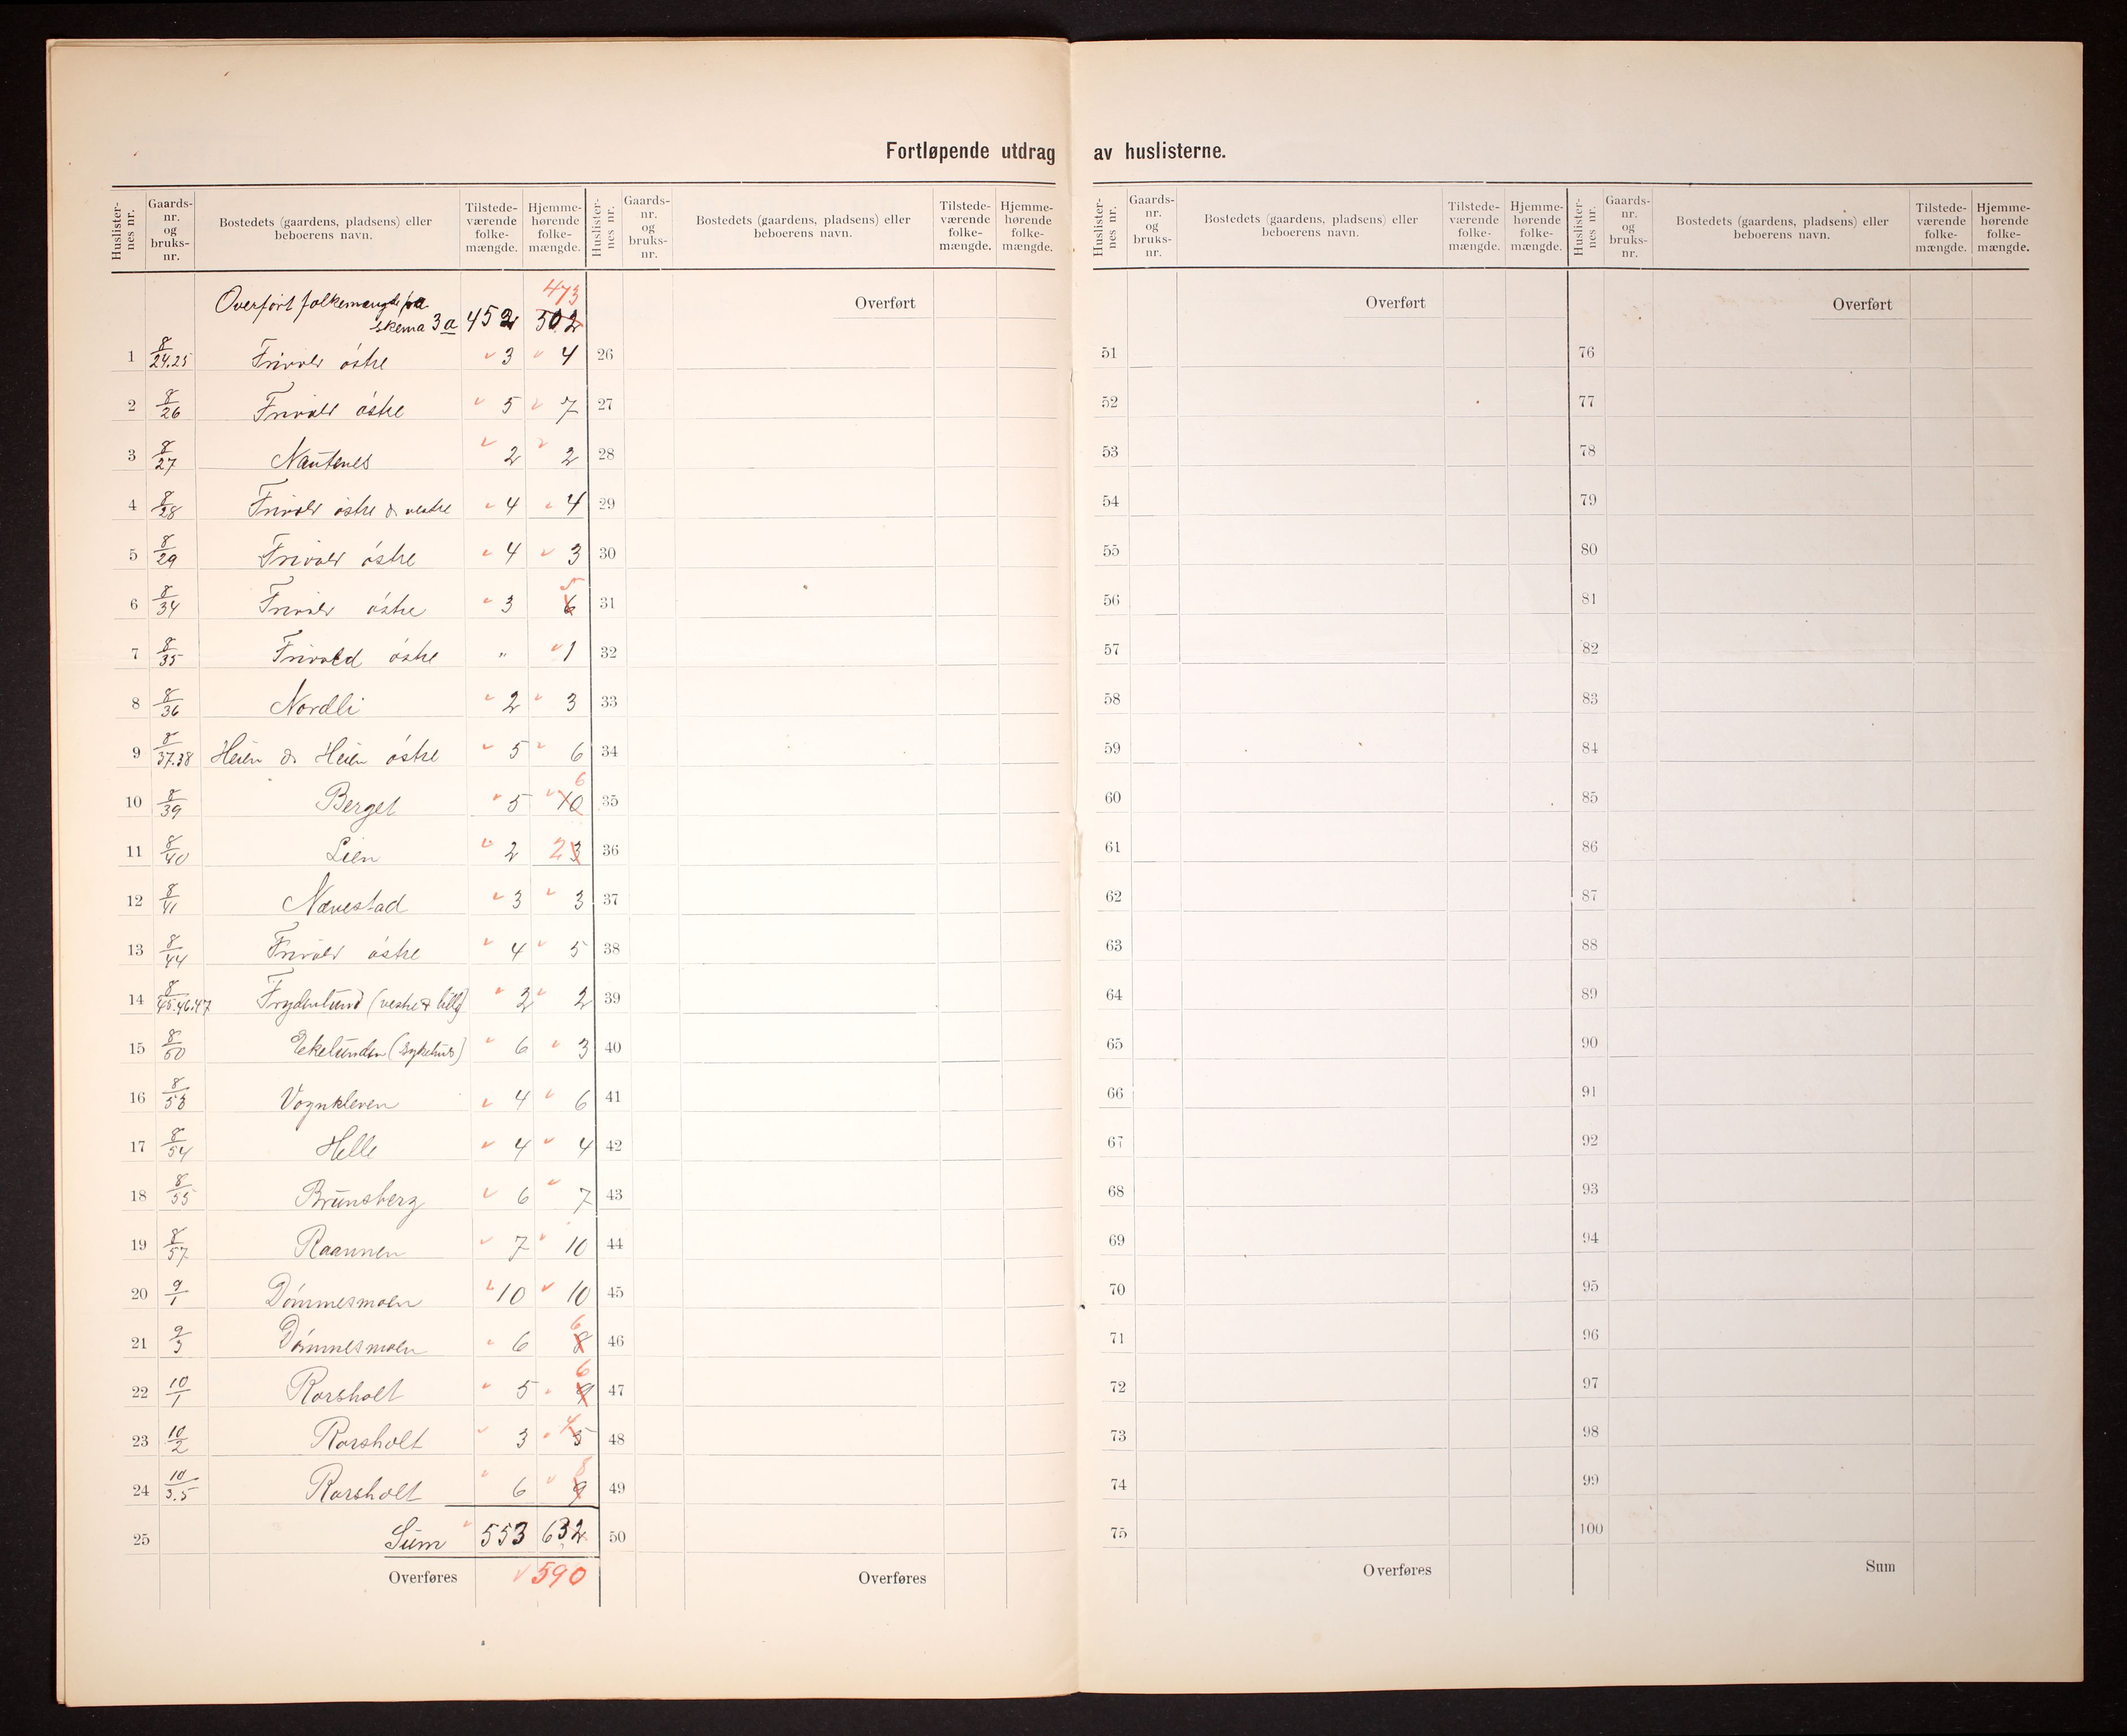 Fortløpende utdrag av huslisterne.
Huslister-nes nr. | Gaards-nr. og bruks-nr. | Bostedets (gaardens, pladsens) eller beboerens navn. | Tilstede-værende folke-mængde. | Hjemme-hørende folke-mængde. | Huslister-nes nr. | Gaards-nr. og bruks-nr. | Bostedets (gaardens, pladsens) eller beboerens navn. | Tilstede-værende folke-mængde. | Hjemme-hørende folke-mængde. | Huslister-nes nr. | Gaards-nr. og bruks-nr. | Bostedets (gaardens, pladsens) eller beboerens navn. | Tilstede-værende folke-mængde. | Hjemme-hørende folke-mængde. | Huslister-nes nr. | Gaards-nr. og bruks-nr. | Bostedets (gaardens, pladsens) eller beboerens navn. | Tilstede-værende folke-mængde. | Hjemme-hørende folke-mængde.
473
Overført folkemængde fra Overført Overført Overført
skema 3a 452 502
1 8/24.25 Frivold østre 3 4 26 51 76
2 8/26 Frivold østre 5 7 27 52 77
3 8/27 Nautenes 2 2 28 53 78
4 8/28 Frivold østre & vestre 4 4 29 54 79
5 8/29 Frivold østre 4 3 30 55 80
6 8/34 Frivold østre 3 6 5 31 56 81
7 8/35 Frivold østre " 1 32 57 82
8 8/36 Nordli 2 3 33 58 83
9 8/37.38 Heien & Heien østre 5 6 34 59 84
10 8/39 Berget 5 10 6 35 60 85
11 8/40 Lien 2 2 3 36 61 86
12 8/41 Nævestad 3 3 37 62 87
13 8/44 Frivold østre 4 5 38 63 88
14 8/45.46.47 Frydenlund (vestre & lille) 2 2 39 64 89
15 8/50 Ekelunden (sykehus) 6 3 40 65 90
16 8/53 Vognkleven 4 6 41 66 91
17 8/54 Helle 4 4 42 67 92
18 8/55 Brunsberg 6 7 43 68 93
19 8/57 Raannen 7 10 44 69 94
20 9/1 Dømmesmoen 10 10 45 70 95
21 9/3 Dømmesmoen 6 8 6 46 71 96
22 10/1 Rorsholt 5 9 6 47 72 97
23 10/2 Rorsholt 3 5 4 48 73 98
24 10/3.5 Rorsholt 6 9 8 49 74 99
25 Sum 553 632 50 75 100
Overføres 590 Overføres Overføres Sum